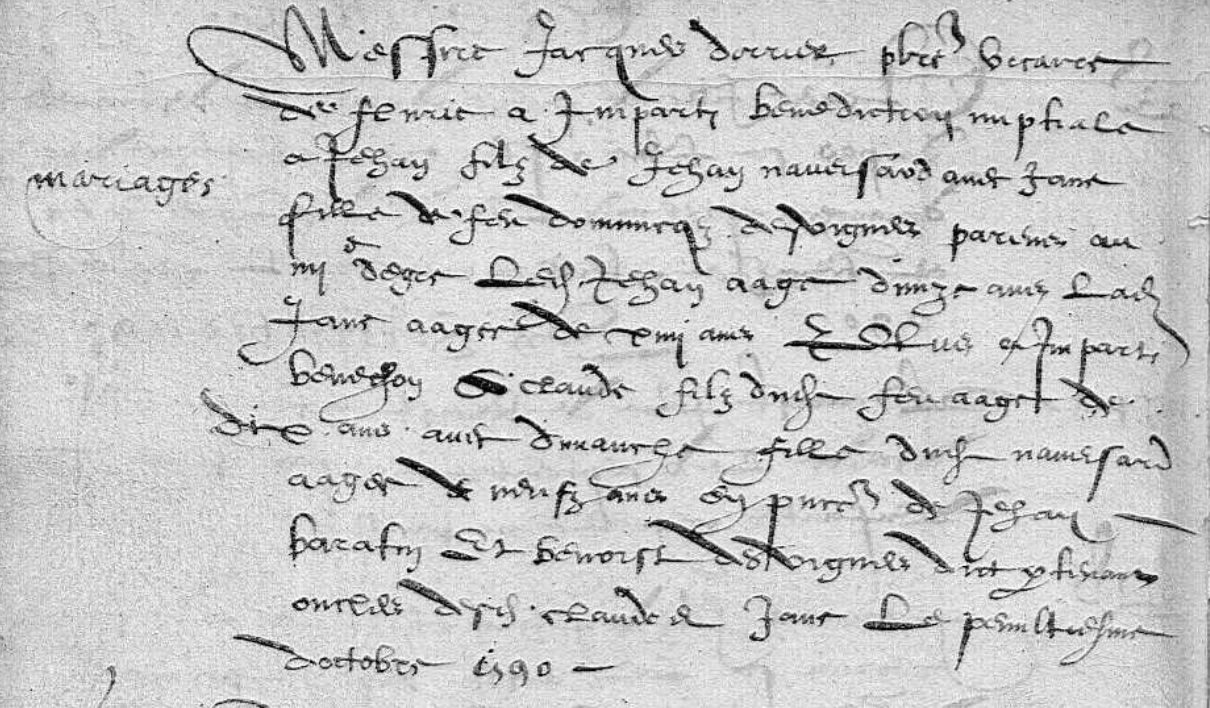 Messire Jacques dorrier pbre vicaire
de fleurie a Imparti benediction nuptiale
mariages
a Jehan filz de Jehan naversard avec Jane
fille de feu dominicq desvignes parens au
iiii e degre Led Jehan aage dunze ans Lad
Jane aagee de xiiii ans Et Plus a Imparti
benediction a claude filz dudict feu aage de
dix ans avec dimanche fille dud naversard
aagee de neufz ans en pnce de Jehan
baratin Et benoist desvignes dict
oncles desd claude et Jane Le penultiesme
doctobre 1590